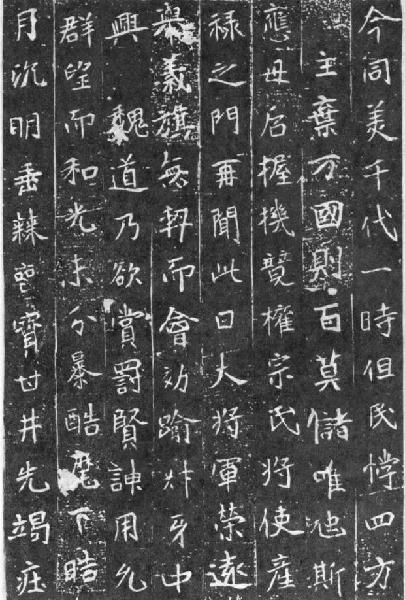 今同美千代一時但民悖四方
主棄万國則百莫儲唯虵斯
應母后握機競權宗氏将使産
禄之門再聞此日大将軍榮遠
舉義旗無契而會効踰爪牙中
興魏道乃欲賞罰賢誅用允
群望而和光未分暴酷麾下晧
月沉明垂棘喪寶甘井先竭疰